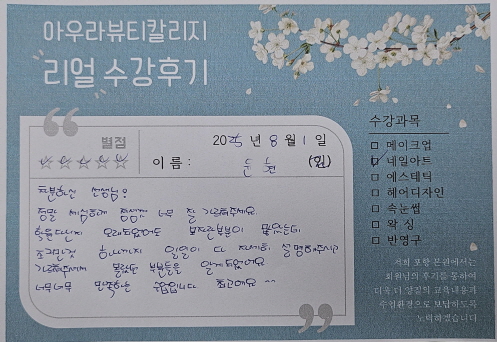 아우라뷰티칼리지
"리얼 수강후기
별점
2025 년 8 월 1 일
☆☆☆☆☆
이름 :
(인)
차분하신 선생님?
정말 세심하게 점검도 너무 잘 가르쳐주세요
학원다닌지 오래되었어도 부족한부분이 많았는데
조그만것 하나까지 일일이 다 자세히 설명해주시고
가르쳐주셔서 몰랐던 부분들을 알게되었어요
너무너무 만족하는 수업입니다 최고에요 ^^
"
수강과목
□ 메이크업
☑ 네일아트
□ 에스테틱
□ 헤어디자인
□ 속눈썹
□ 왁싱
□ 반영구
저희 포항 본원에서는
회원님의 후기를 통하여
더욱 더 양질의 교육내용과
수업환경으로 보답하도록
노력하겠습니다